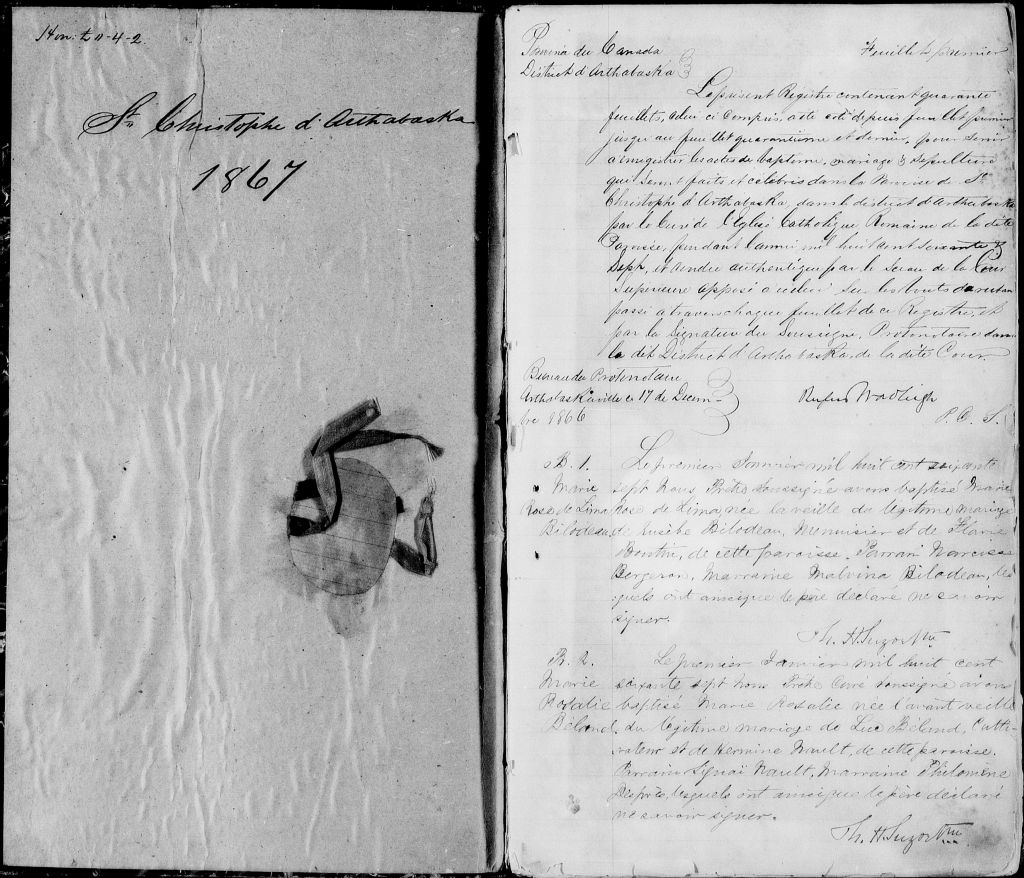 St Christophe d'Arthabaska
1867
Province du Canada
District d'Arthabaska
Feuillet premier
Le présent Registre contenant quarante
feuillets, celui ci compris, a été coté depuis feuillet premier
jusqu'au feuillet quarantième et dernier, pour servir
à enregistrer les actes de baptême, mariage & sépulture
qui seront faits et célébrés dans la Paroisse de St
Christophe d'Arthabaska, dans le district d'Arthabaska
par le Curé de l'Eglise Catholique Romaine de la dite
Paroisse, pendant l'année mil huit cent soixante &
Sept, et rendu authentique par le Sceau de la Cour
Supérieure apposé à celui sur les bouts du ruban
passé à travers chaque feuillet de ce Registre, et
par la Signature du Soussigné, Protonotaire dans
le dit District d'Arthabaska, de la dite Cour.
Bureau du Protonotaire
Arthabaskaville ce 17 de Décem-
bre 1866
Rufus Wadleigh
P. C. S.
B. 1.
Marie
Rose de Lima
Bilodeau
Le premier Janvier mil huit cent soixante
sept Nous Prêtre soussigné avons baptisé Marie
Rose de Lima née la veille du légitime mariage
de Eusèbe Bilodeau, Menuisier et de Flavie
de cette paroisse. Parrain Narcisse
Bergeron, Marraine Malvina Bilodeau, les
quels ont ainsi que le père déclaré ne savoir
signer.
Th. H. Suzor Ptre
B. 2.
Marie
Rosalie
Béland
Le premier Janvier mil huit cent
soixante sept nous Prêtre Curé soussigné avons
baptisé Marie Rosalie née l'avant veille
du légitime mariage de Luc Béland, Culti-
vateur et de Hermine Nault, de cette paroisse.
Parrain Nault, Marraine Philomène
lesquels ont ainsi que le père déclaré
ne savoir signer.
Th. H. Suzor Ptre